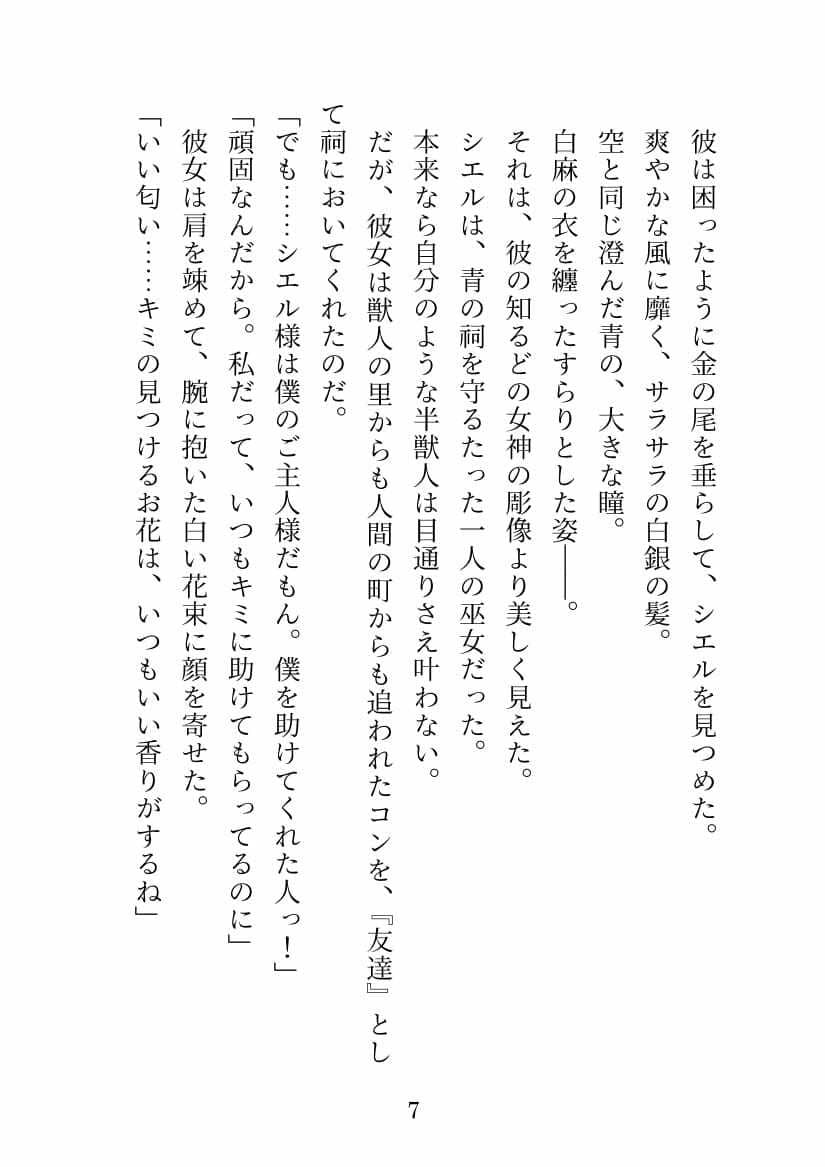 彼は困ったように金の尾を垂らして、シエルを見つめた。
　爽やかな風に靡く、サラサラの白銀の髪。
　空と同じ澄んだ青の、大きな瞳。
　白麻の衣を纏ったすらりとした姿――。
　それは、彼の知るどの女神の彫像より美しく見えた。
　シエルは、青の祠を守るたった一人の巫女だった。
　本来なら自分のような半獣人は目通りさえ叶わない。
　だが、彼女は獣人の里からも人間の町からも追われたコンを、『友達』とし
て祠においてくれたのだ。
「でも……シエル様は僕のご主人様だもん。僕を助けてくれた人っ！」
「頑固なんだから。私だって、いつもキミに助けてもらってるのに」
　彼女は肩を竦めて、腕に抱いた白い花束に顔を寄せた。
「いい匂い……キミの見つけるお花は、いつもいい香りがするね」
7